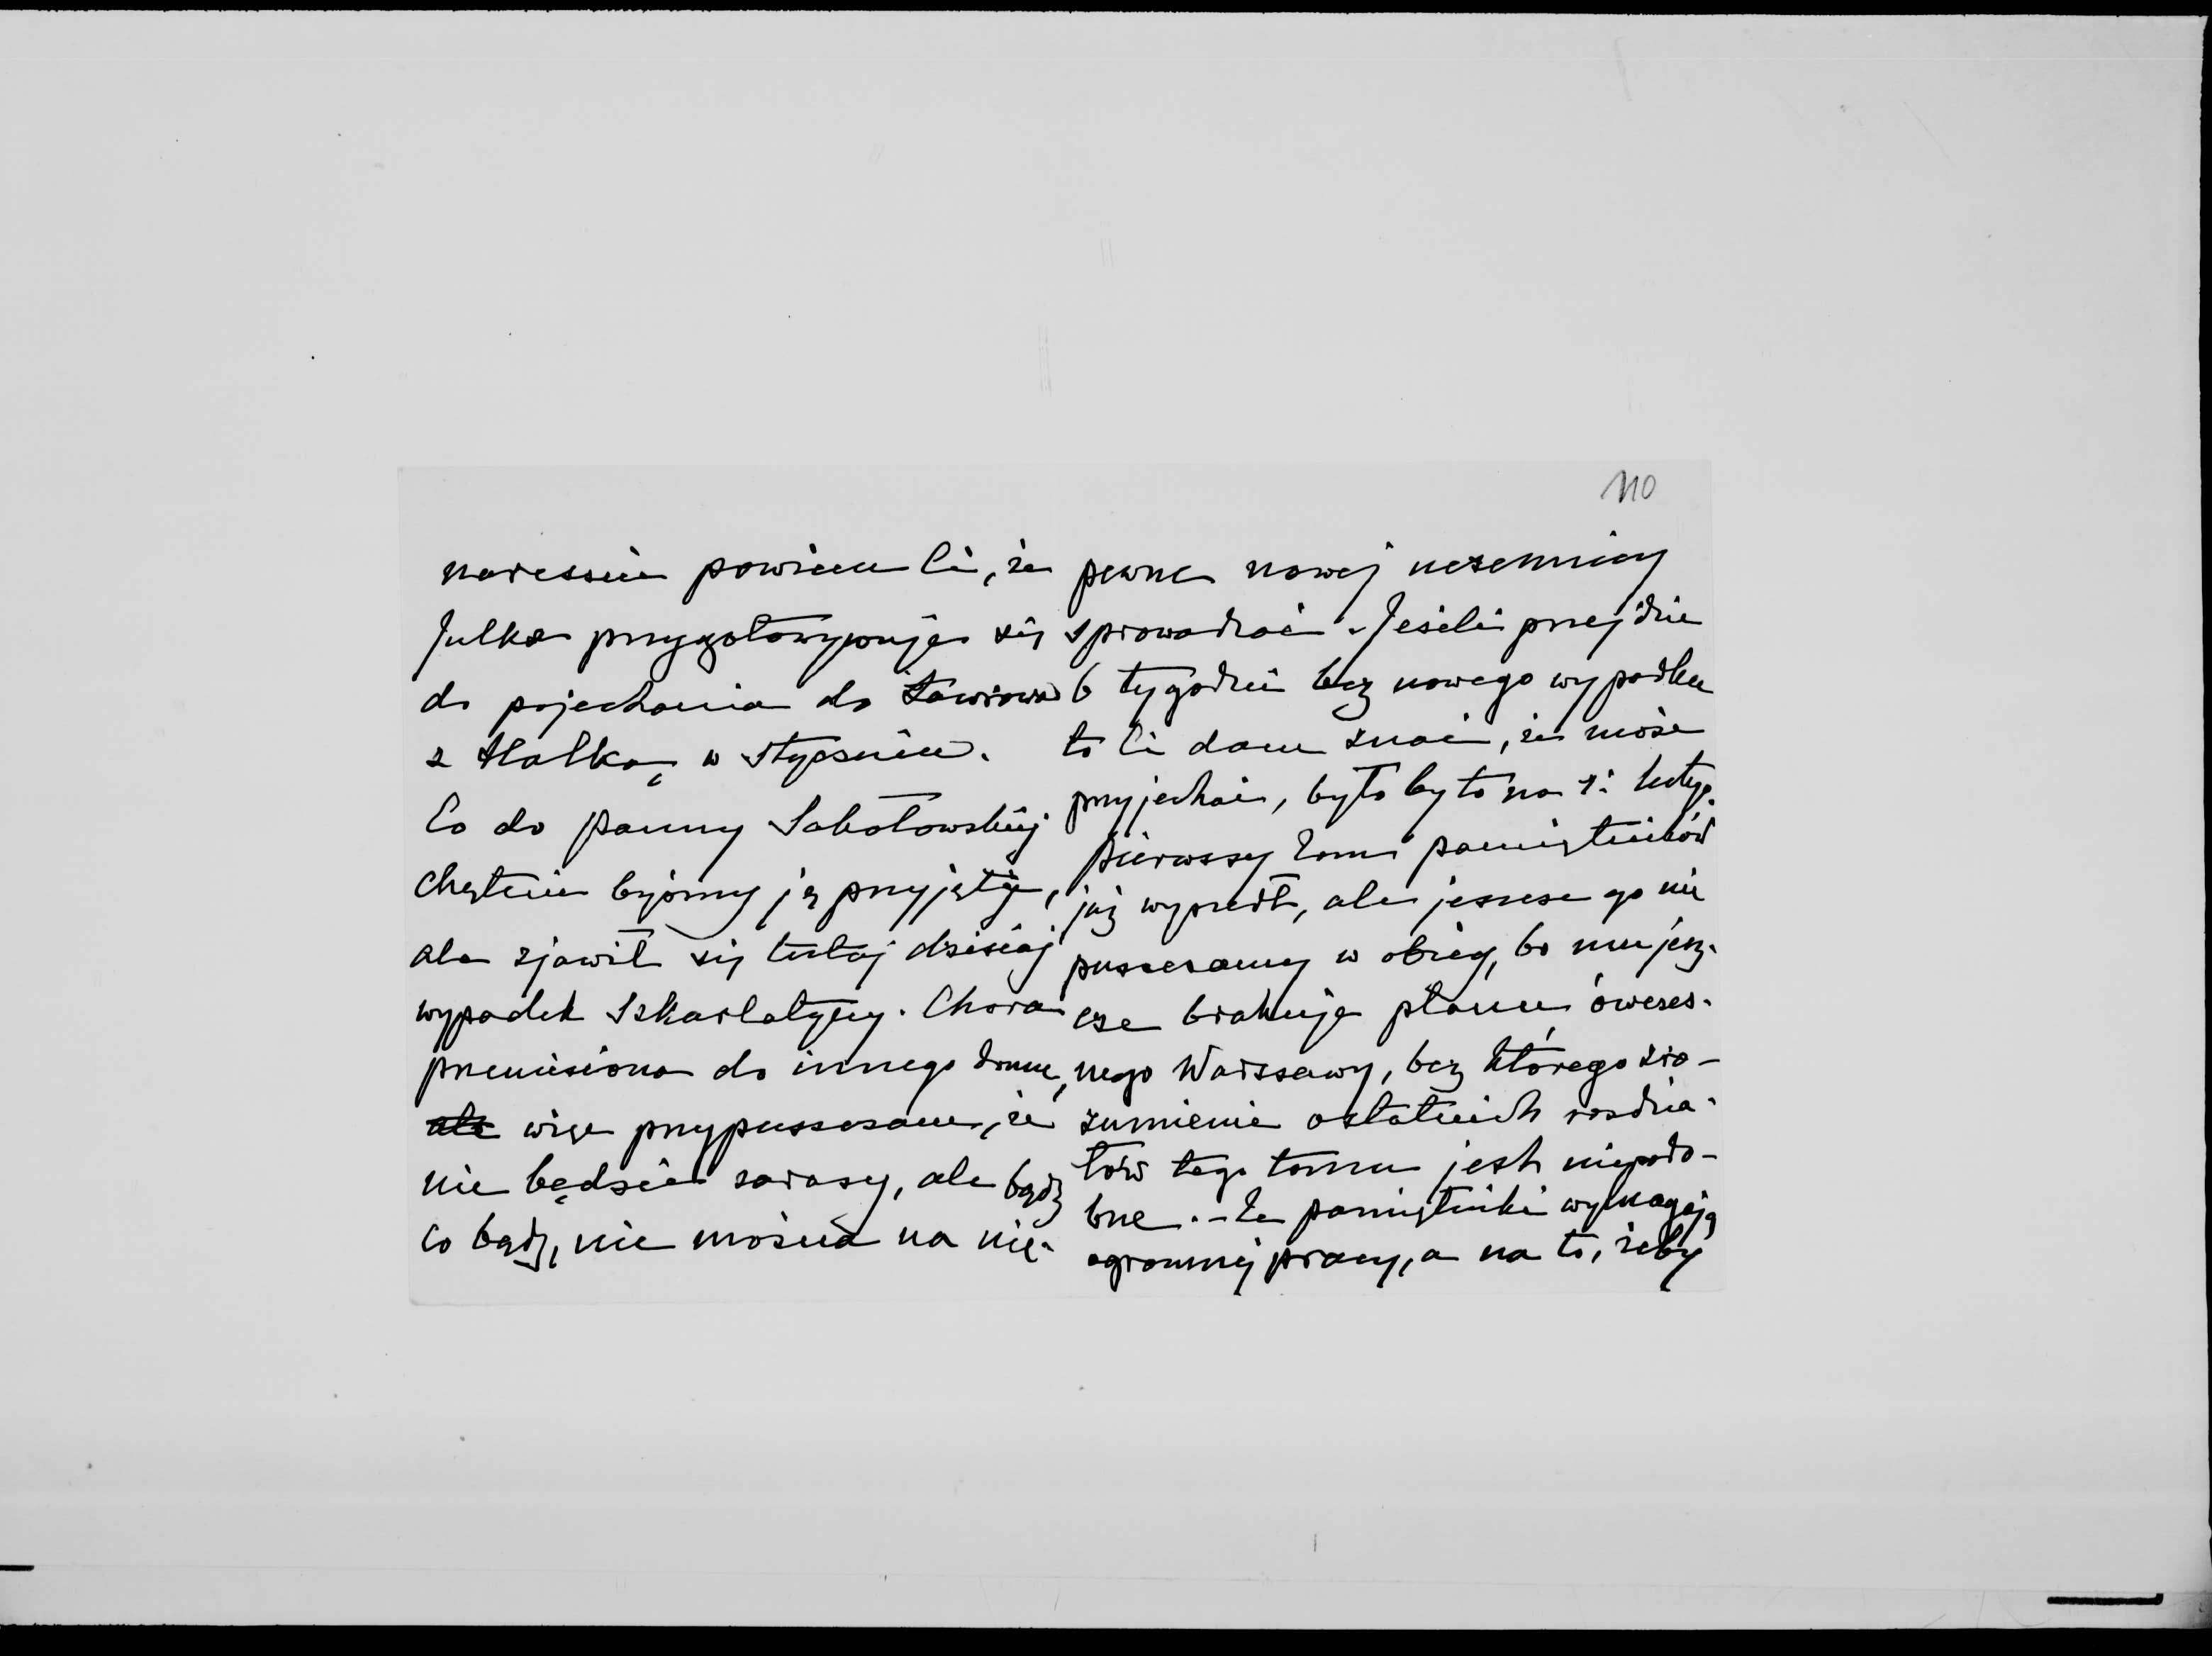 110
nareszcie powiem Ci, że
Julka przygotowywuje się
do pojechania do Ławrowa
z Halką w styczniu.
Co do panny Sokołowskiej
chętnie byśmy ją przyjęły,
ale zjawił się tutaj dzisiaj
wypadek szkarlatyny. Chora
przeniesiona do innego domu,
ale więc przypuszczam, że
nie będzie zarazy, ale bądź
co bądź, nie można na nie-
pewne nowej uczennicy
sprowadzać. Jeżeli przejdzie
6 tygodni bez nowego wypadku
to Ci dam znać, że może
przyjechać, było by to na 1. lutego.
Pierwszy tom pamiętników
już wyszedł, ale jeszcze go nie
puszczamy w obieg, bo mu jesz-
cze brakuje planu ówczes-
nego Warszawy, bez którego zro-
zumienie ostatnich rozdzia-
łów tego tomu jest niepodo-
bne. – Te pamiętniki wymagają
ogromnej pracy, a na to, żeby